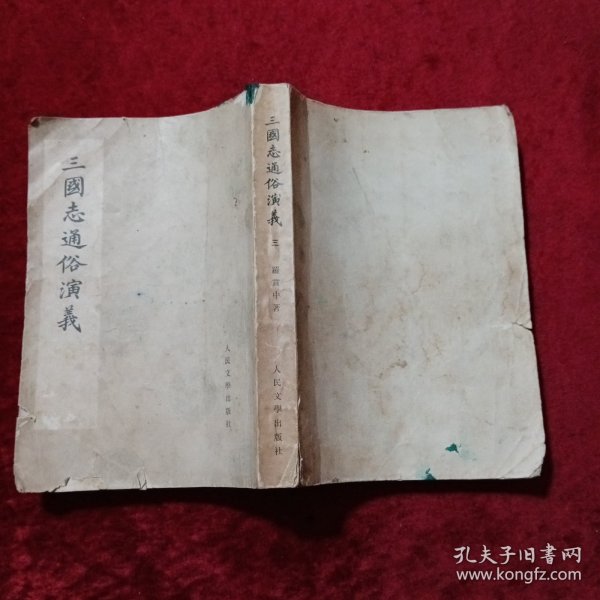 三國志通俗演義
人民文學出版社
三國志通俗演義
三
羅貫中著
人民文學出版社
孔夫子旧书网
www.kongfz.com